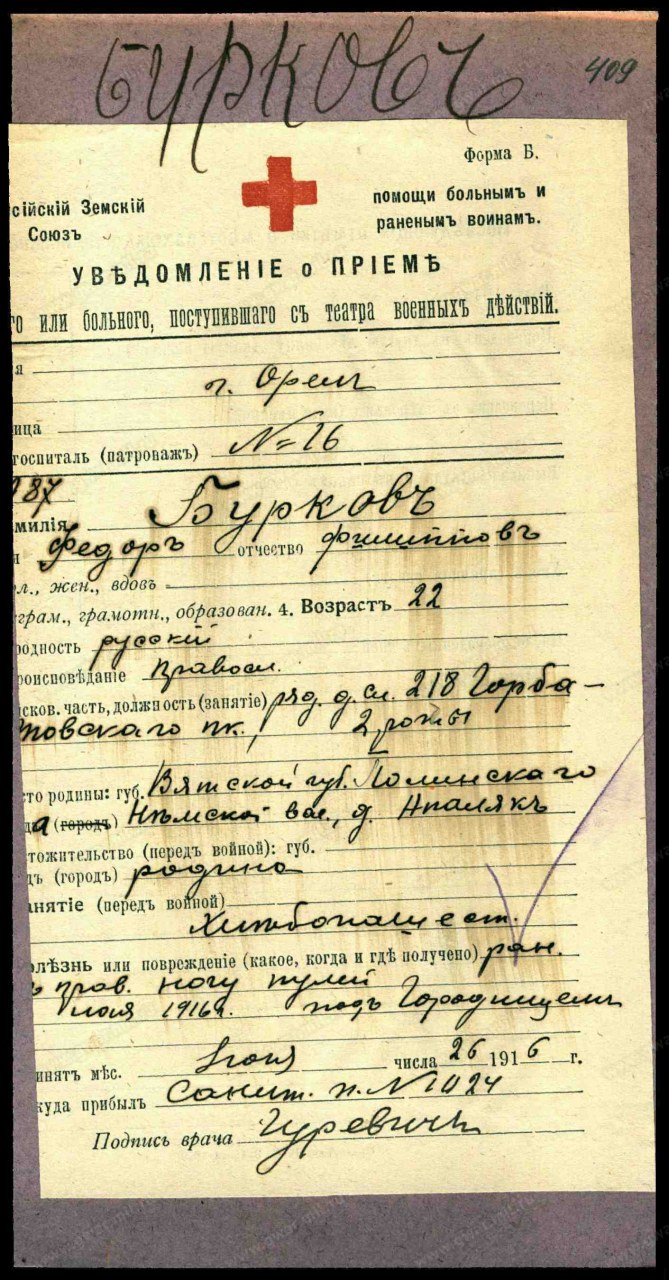 Бурковъ
409
Форма Б.
сійскій Земскій
Союзъ
помощи больнымъ и
раненымъ воинамъ.
УВѢДОМЛЕНІЕ о ПРІЕМѢ
го или больного, поступившаго съ театра военныхъ дѣйствій.
я
г. Орелъ
ица
госпиталь (патроважъ) №=16
187
милія Бурковъ
Федоръ отчество Филипповъ
л., жен., вдовъ
грам., грамотн., образован. 4. Возрастъ 22
родность русскій
роисповѣданіе правосл.
сков. часть, должность (занятіе) ряд. д. сл. 218 Горба-
товскаго пк., 2 роты
сто родины: губ. Вятской губ. Нолинскаго
да (городъ) Нѣмской вол., д.
тожительство (передъ войной): губ.
дъ (городъ) родина
анятіе (передъ войной)
Хлѣбопашест.
олѣзнь или поврежденіе (какое, когда и гдѣ получено) ран.
въ прав. ногу пулей
1916 г. подъ Городищемъ
инятъ мѣс. Іюня числа 26 1916 г.
куда прибылъ Санит. п. № 1024
Подпись врача Гуревичъ